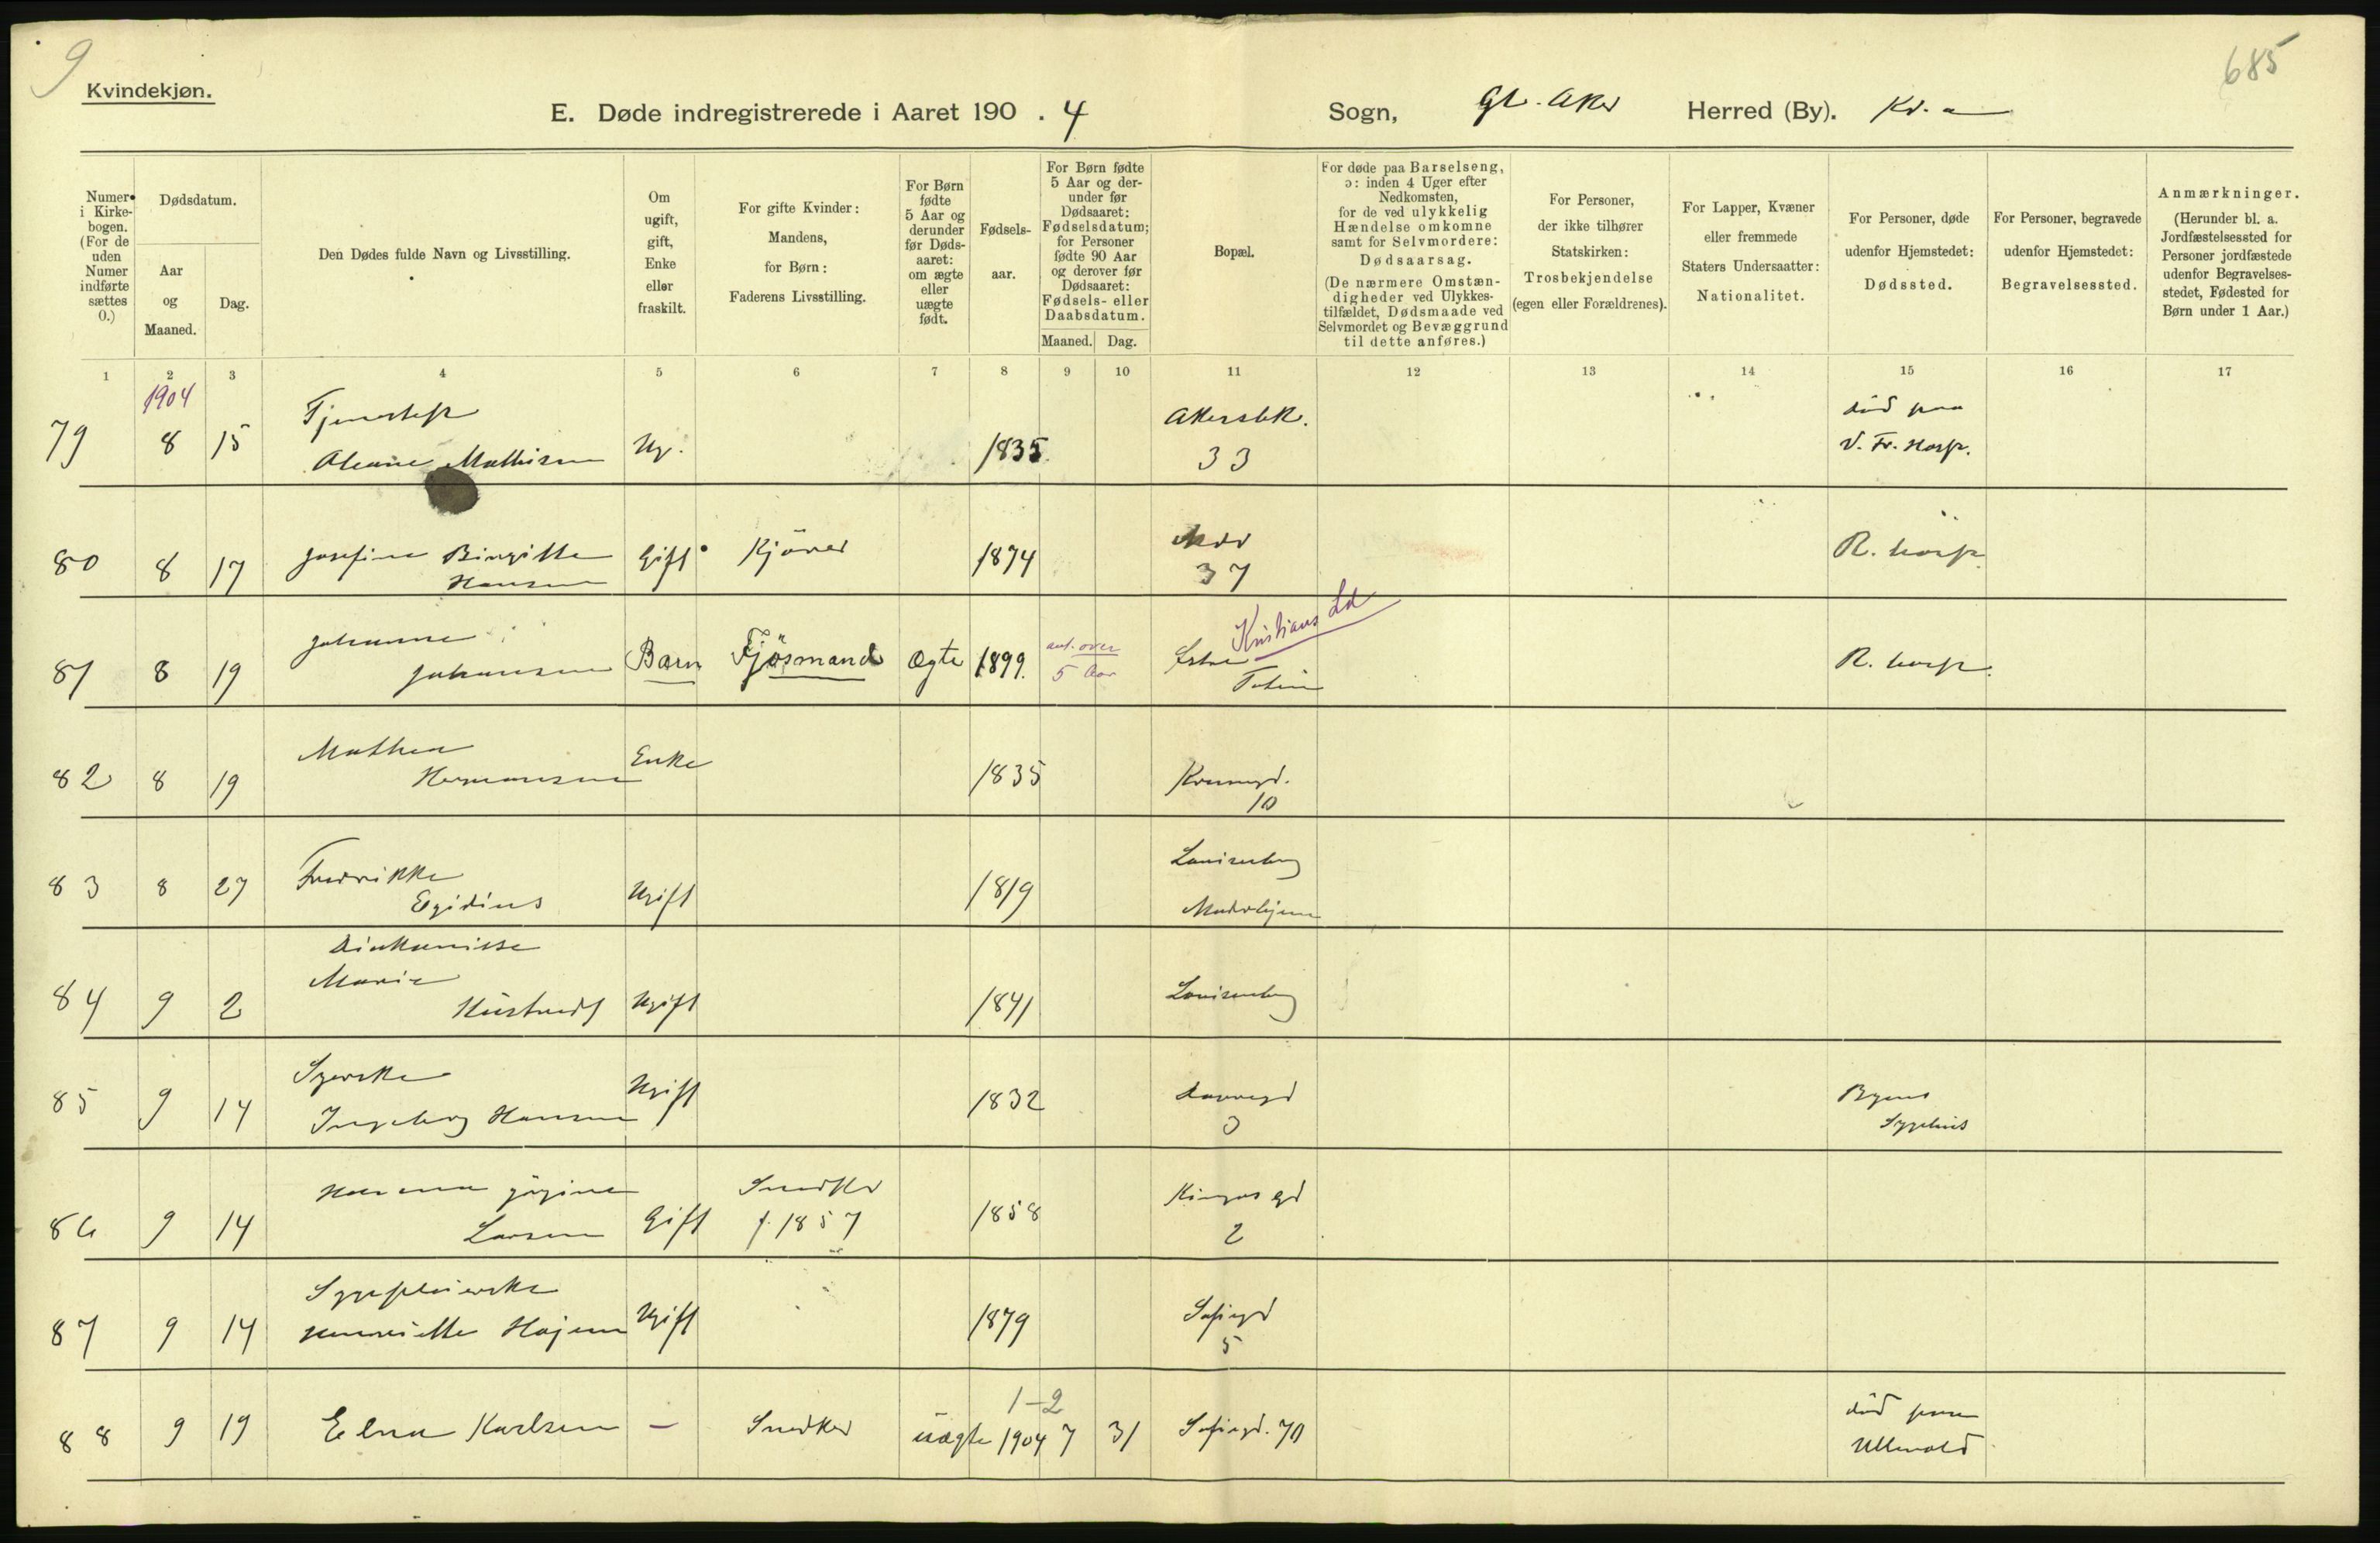 9
685
Kvindekjøn.
E. Døde indregistrerede i Aaret 190 . 4 Sogn, Gl. Aker Herred (By). Kr. a
Numer i Kirkebogen. (For de uden Numer indførte sættes 0.)
Dødsdatum.
Aar og Maaned.
Dag.
Den Dødes fulde Navn og Livsstilling.
Om ugift, gift, Enke eller fraskilt.
For gifte Kvinder: Mandens, for Børn: Faderens Livsstilling.
For Børn fødte 5 Aar og derunder før Dødsaaret: om ægte eller uægte født.
Fødselsaar.
For Børn fødte 5 Aar og derunder før Dødsaaret: Fødselsdatum; for Personer fødte 90 Aar og derover før Dødsaaret: Fødsels- eller Daabsdatum.
Maaned. Dag.
Bopæl.
For døde paa Barselseng, ɔ: inden 4 Uger efter Nedkomsten, for de ved ulykkelig Hændelse omkomne samt for Selvmordere: Dødsaarsag. (De nærmere Omstændigheder ved Ulykkestilfældet, Dødsmaade ved Selvmordet og Bevæggrund til dette anføres.)
For Personer, der ikke tilhører Statskirken: Trosbekjendelse (egen eller Forældrenes).
For Lapper, Kvæner eller fremmede Staters Undersaatter: Nationalitet.
For Personer, døde udenfor Hjemstedet: Dødssted.
For Personer, begravede udenfor Hjemstedet: Begravelsessted.
Anmærkninger. (Herunder bl. a. Jordfæstelsessted for Personer jordfæstede udenfor Begravelsesstedet, Fødested for Børn under 1 Aar.)
1 2 3 4 5 6 7 8 9 10 11 12 13 14 15 16 17
1904
79 8 15 Mathisen Ug. 1835 Akersbk. 33 død paa V. Fr. Hosp.
80 8 17 Josefine Birgitte Hansen Gift Kjører 1874 37 R. hosp.
81 8 19 Johanne Johansen Barn Fjøsmand Ægte 1899. ant. over 5 Aar Kristians Toten R. hosp.
82 8 19 Mathea Hermansen Enke 1835 10
83 8 27 Fredrikke Egidius Ugift 1819 Lovisenberg Moderhjem
84 9 2 Diakonisse Marie Ugift 1841 Lovisenberg
85 9 14 Syerske Ingeborg Hansen Ugift 1832 3 Byens Sygehus
86 9 14 Larsen Gift Snedker f. 1857 1858 Kingos gd 2
87 9 14 Sygepleierske Henriette Ugift 1879 Sofiegd 5
88 9 19 Elna Karlsen — Snedker uægte 1-2 1904 7 31 Sofiegd. 70 død paa Ullevold